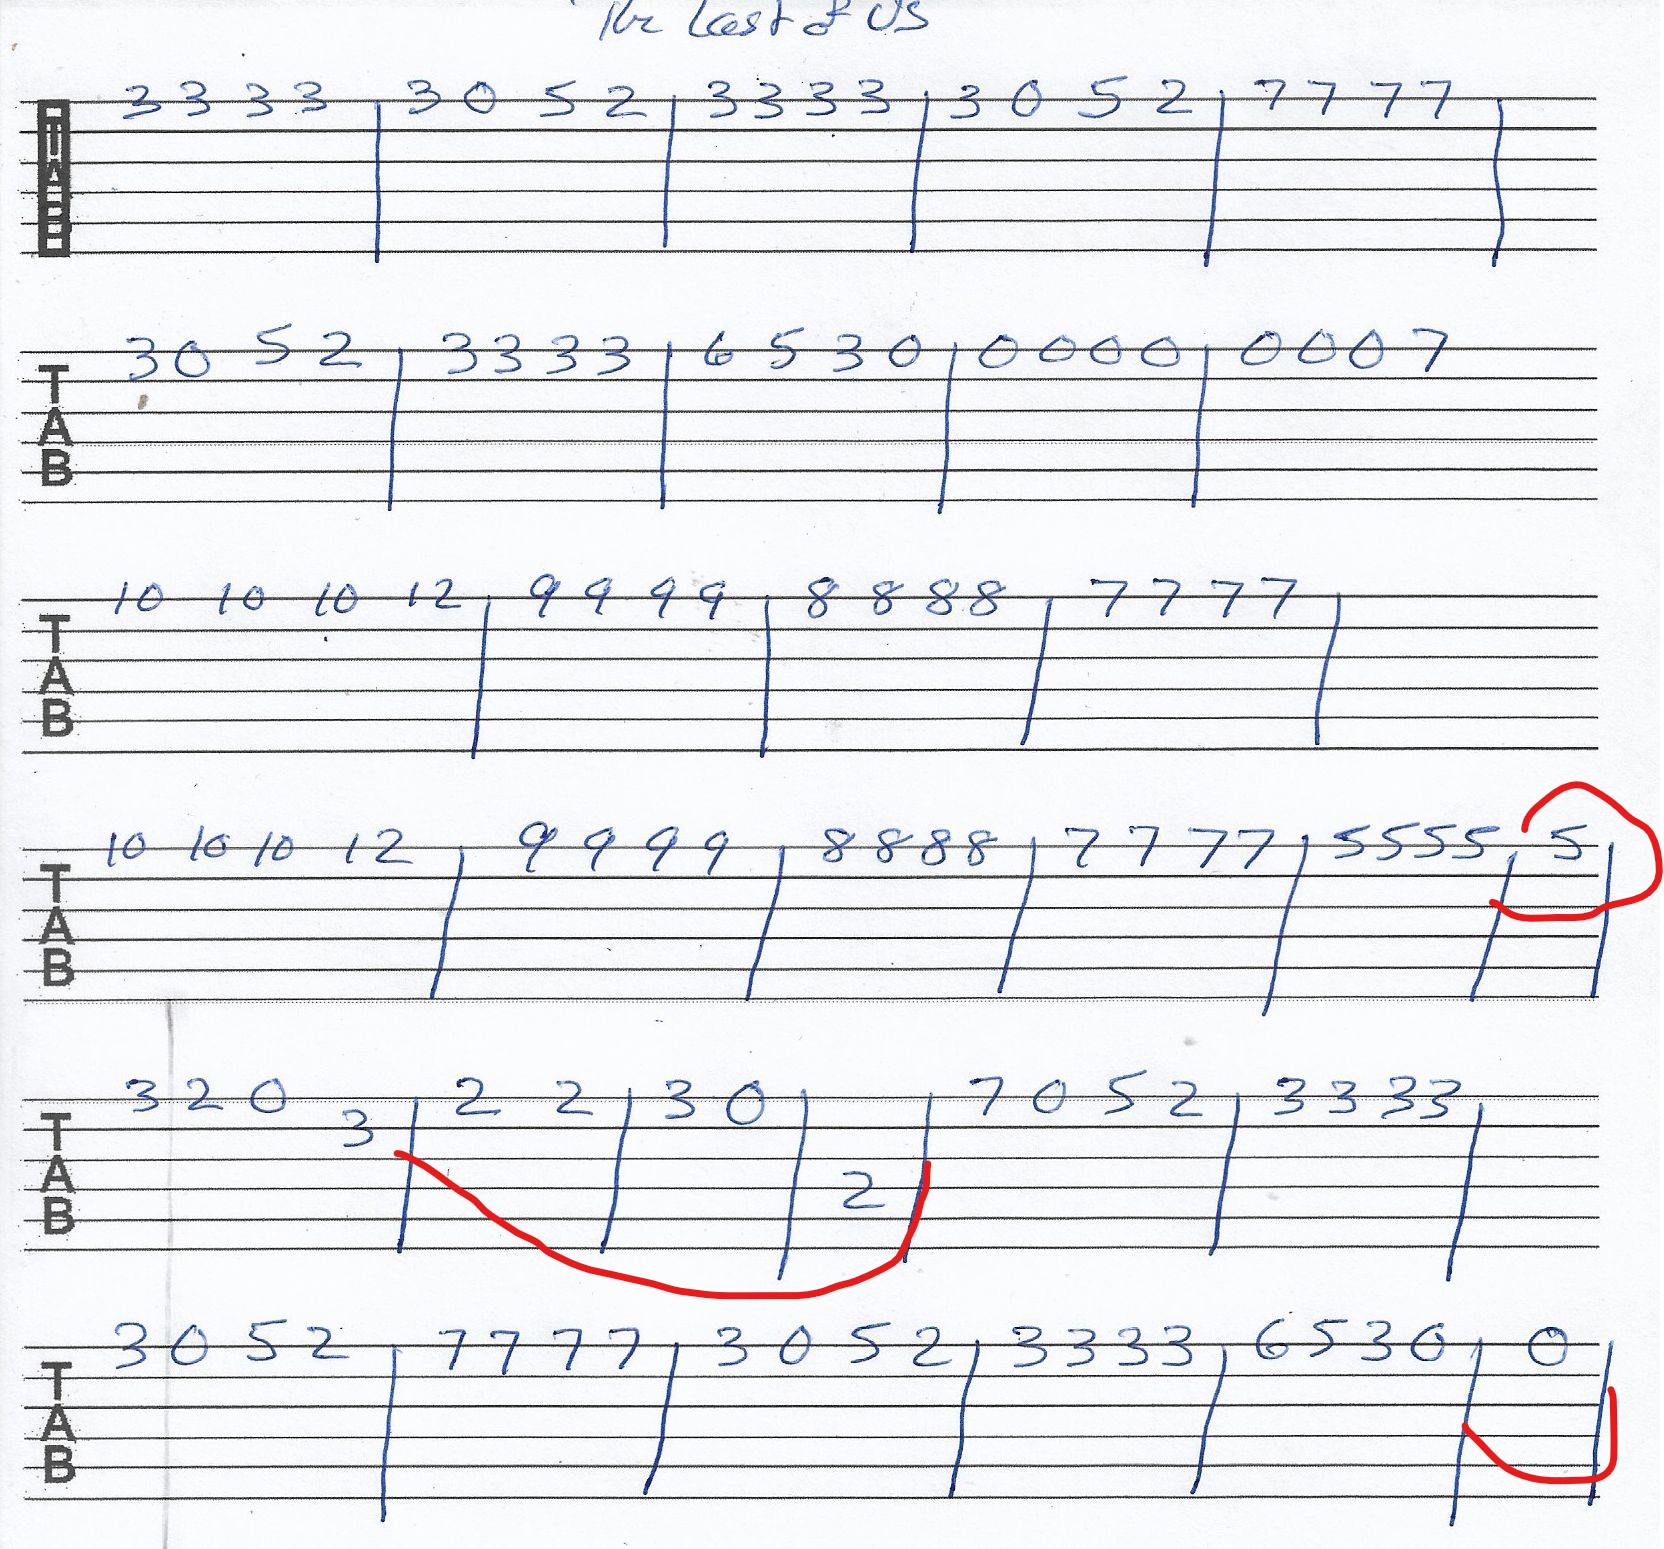 The Last of Us
TAB 3 3 3 3 3 0 5 2 3 3 3 3 3 0 5 2 7 7 7 7
TAB 3 0 5 2 3 3 3 3 6 5 3 0 0 0 0 0 0 0 0 7
TAB 10 10 10 12 9 9 9 9 8 8 8 8 7 7 7 7
TAB 10 10 10 12 9 9 9 9 8 8 8 8 7 7 7 7 5 5 5 5 5
TAB 3 2 0 3 2 2 3 0 2 7 0 5 2 3 3 3 3
TAB 3 0 5 2 7 7 7 7 3 0 5 2 3 3 3 3 6 5 3 0 0